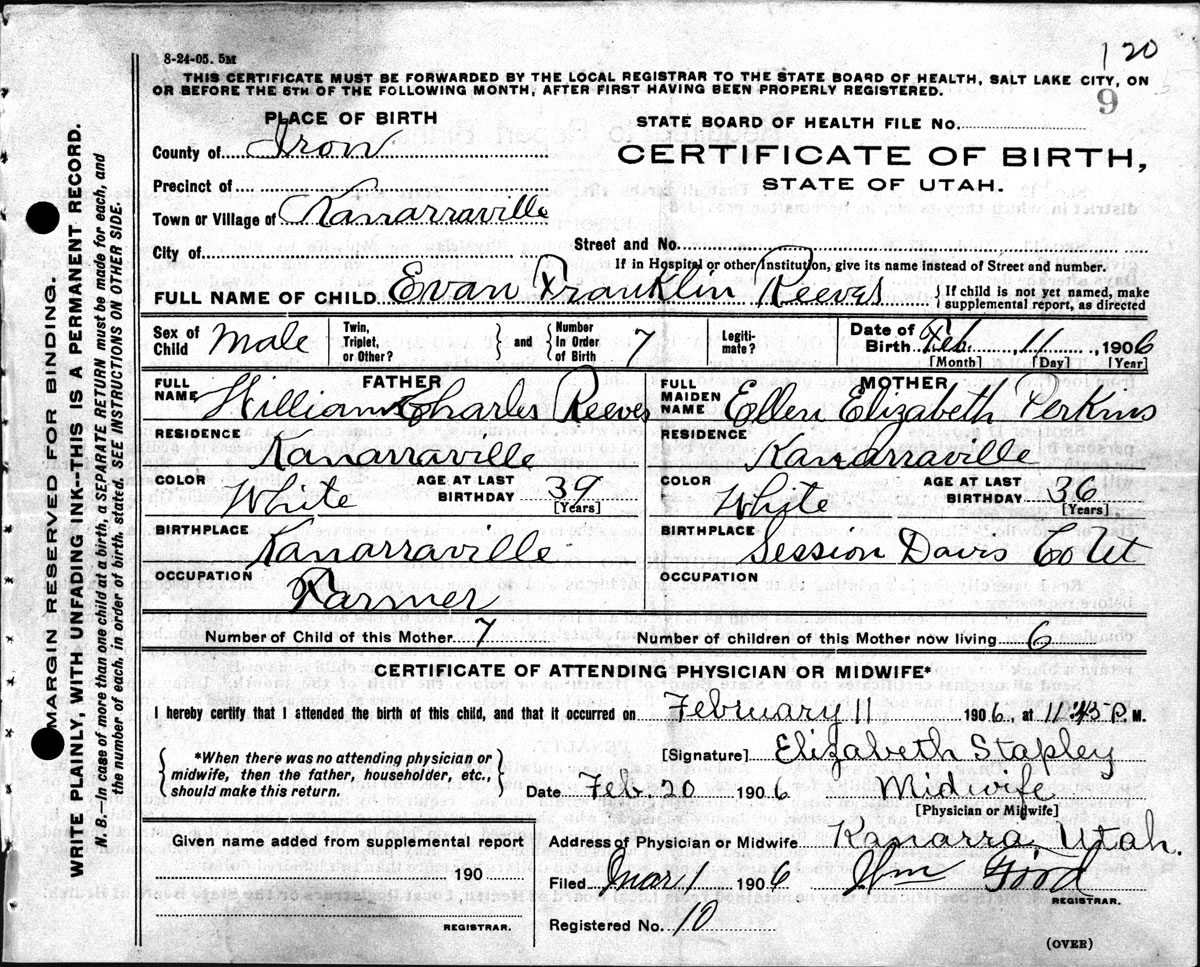 8-24-05. 5M
120
THIS CERTIFICATE MUST BE FORWARDED BY THE LOCAL REGISTRAR TO THE STATE BOARD OF HEALTH, SALT LAKE CITY, ON
OR BEFORE THE 5TH OF THE FOLLOWING MONTH, AFTER FIRST HAVING BEEN PROPERLY REGISTERED.
9
PLACE OF BIRTH
STATE BOARD OF HEALTH FILE No.
County of Iron
CERTIFICATE OF BIRTH,
STATE OF UTAH.
Precinct of
Town or Village of Kanarraville
City of
Street and No.
If in Hospital or other Institution, give its name instead of Street and number.
FULL NAME OF CHILD Evan Franklin Reeves { If child is not yet named, make supplemental report, as directed
Sex of Child Male
Twin, Triplet, or Other? } and { Number In Order of Birth 7
Legitimate?
Date of Birth Feb. 11, 1906
[Month] [Day] [Year]
FATHER
FULL NAME William Charles Reeves
MOTHER
FULL MAIDEN NAME Ellen Elizabeth Perkins
RESIDENCE Kanarraville
RESIDENCE Kanarraville
COLOR White AGE AT LAST BIRTHDAY 39 [Years]
COLOR White AGE AT LAST BIRTHDAY 36 [Years]
BIRTHPLACE Kanarraville
BIRTHPLACE Session Davis Co Ut
OCCUPATION Farmer
OCCUPATION
Number of Child of this Mother 7
Number of children of this Mother now living 6
CERTIFICATE OF ATTENDING PHYSICIAN OR MIDWIFE*
I hereby certify that I attended the birth of this child, and that it occurred on February 11 1906, at 11:45 P. M.
{ *When there was no attending physician or midwife, then the father, householder, etc., should make this return. }
[Signature] Elizabeth Stapley
Date Feb. 20 1906 Midwife
[Physician or Midwife]
Given name added from supplemental report
190
REGISTRAR.
Address of Physician or Midwife Kanarra, Utah.
Filed Mar 1 1906 Wm Ford
REGISTRAR.
Registered No. 10
(OVER)
MARGIN RESERVED FOR BINDING.
WRITE PLAINLY, WITH UNFADING INK--THIS IS A PERMANENT RECORD.
N. B.—In case of more than one child at a birth, a SEPARATE RETURN must be made for each, and
the number of each, in order of birth, stated. SEE INSTRUCTIONS ON OTHER SIDE.